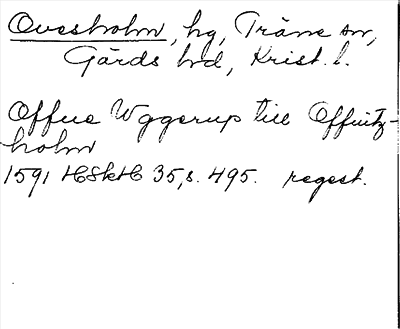 Ovesholm, hg, Träne sn,
Gärds hd, Krist. l.
Offue Wggerup till Offuitz-
holm
1591 HSkH 35, s. 495. regest.